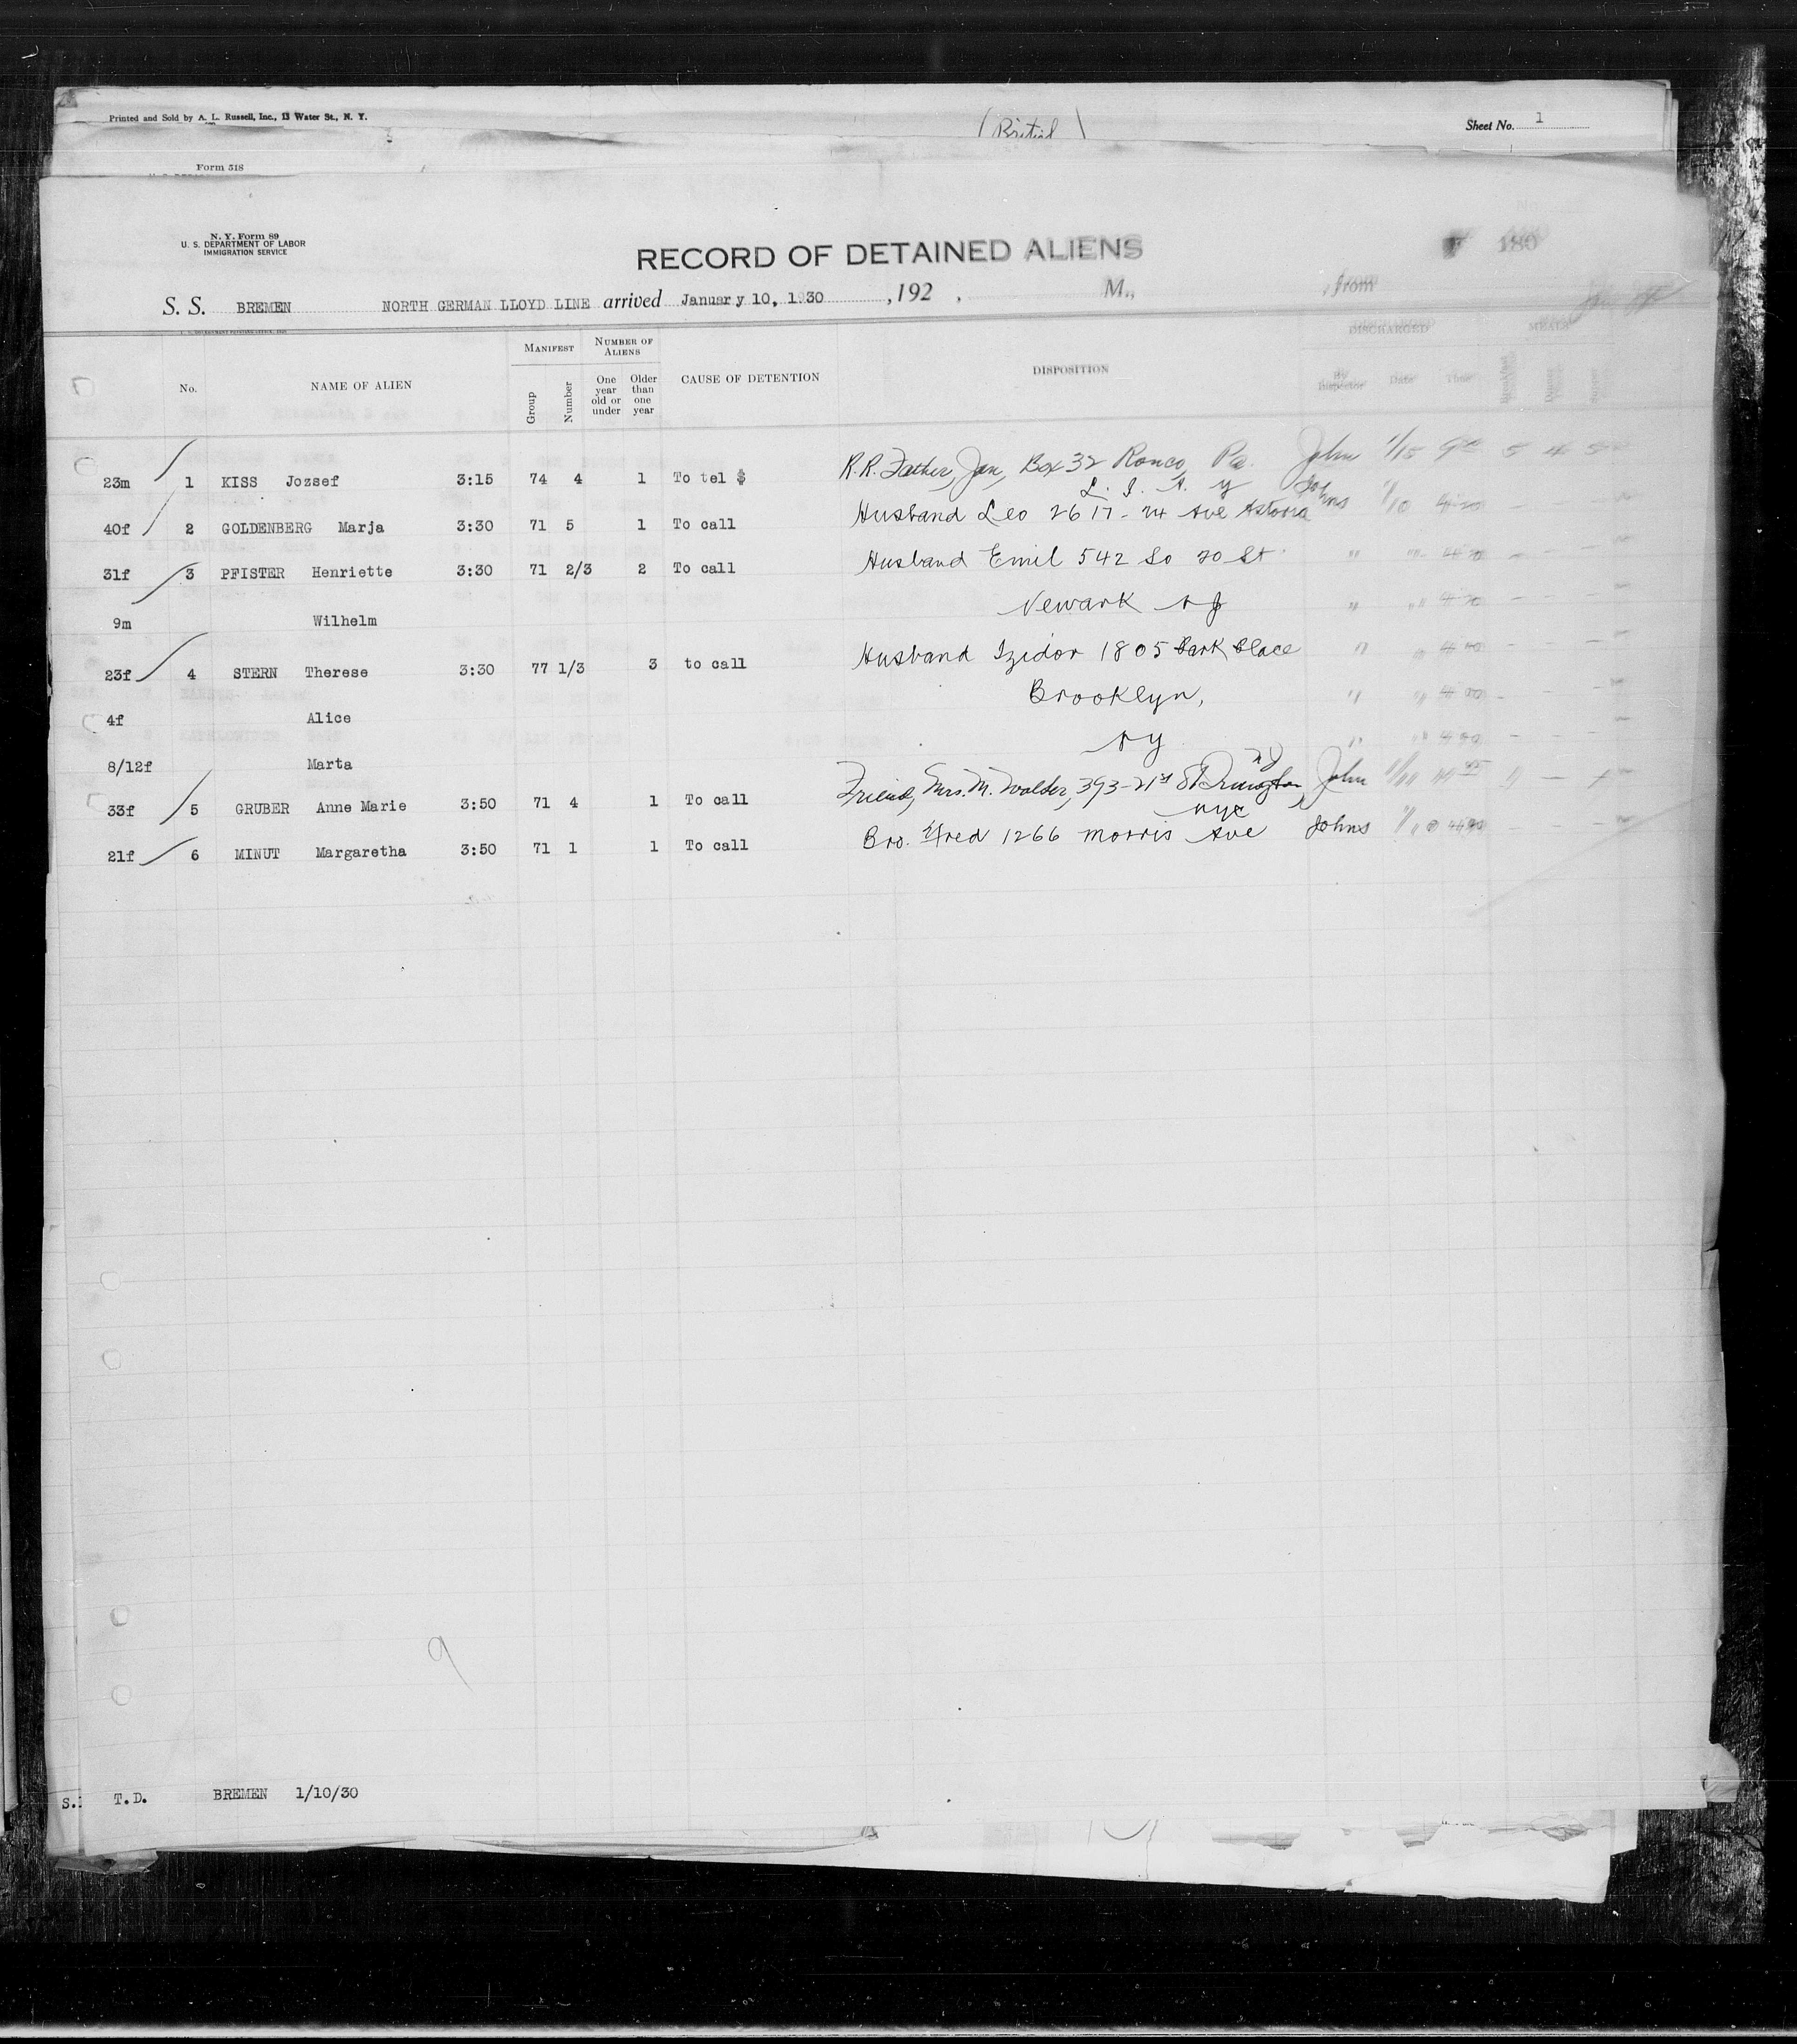 Printed and Sold by A. L. Russell, Inc., 13 Water St., N. Y.
Sheet No. 1
Form 518
N. Y. Form 89
U. S. DEPARTMENT OF LABOR
IMMIGRATION SERVICE
RECORD OF DETAINED ALIENS 180
S. S. BREMEN NORTH GERMAN LLOYD LINE arrived January 10, 1930, 192 , M., from
No. NAME OF ALIEN MANIFEST Group Number NUMBER OF ALIENS One year old or under Older than one year CAUSE OF DETENTION DISPOSITION DISCHARGED By Inspector Date Time MEALS Breakfast Dinner Supper
23m 1 KISS Jozsef 3:15 74 4 1 To tel $ R.R. Father, Jan, Box 32 Ronco, Pa. John 1/15 9 5 4 5
L. I. N. Y
40f 2 GOLDENBERG Marja 3:30 71 5 1 To call Husband Leo 2617-24 Ave Astoria Johns 1/10
31f 3 PFISTER Henriette 3:30 71 2/3 2 To call Husband Emil 542 So 20 St " "
9m Wilhelm Newark NJ " "
23f 4 STERN Therese 3:30 77 1/3 3 to call Husband Izidor 1805 Park Place " "
4f Alice Brooklyn, " "
8/12f Marta NY " "
NJ
33f 5 GRUBER Anne Marie 3:50 71 4 1 To call Friend, Mrs. M. Walder, 393-21st St Irvington, John 1/11
NYC
21f 6 MINUT Margaretha 3:50 71 1 1 To call Bro. Fred 1266 Morris Ave Johns 1/10
9
S.I T.D. BREMEN 1/10/30